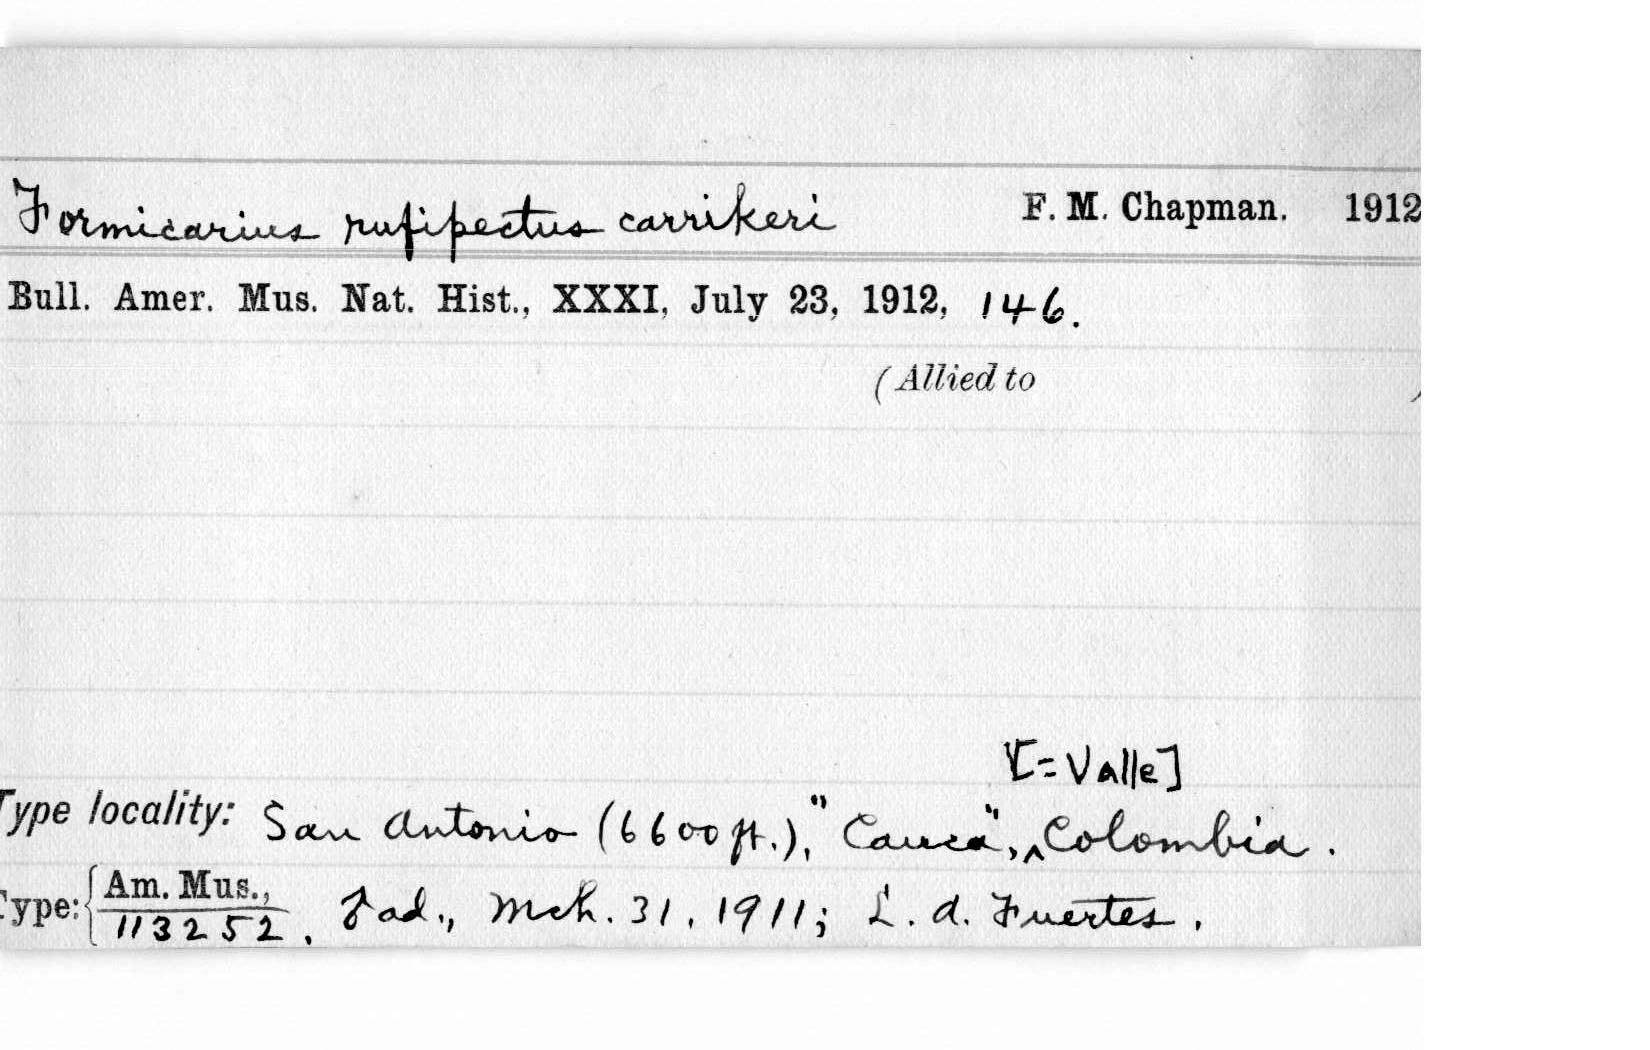 Formicarius rufipectus carrikeri F. M. Chapman. 1912
Bull. Amer. Mus. Nat. Hist., XXXI, July 23, 1912, 146.
(Allied to )
[=Valle]
Type locality: San Antonio (6600 ft.), "Cauca", ^ Colombia.
Type: { Am. Mus.,
113252. ad., Mch. 31, 1911; L. A. Fuertes.